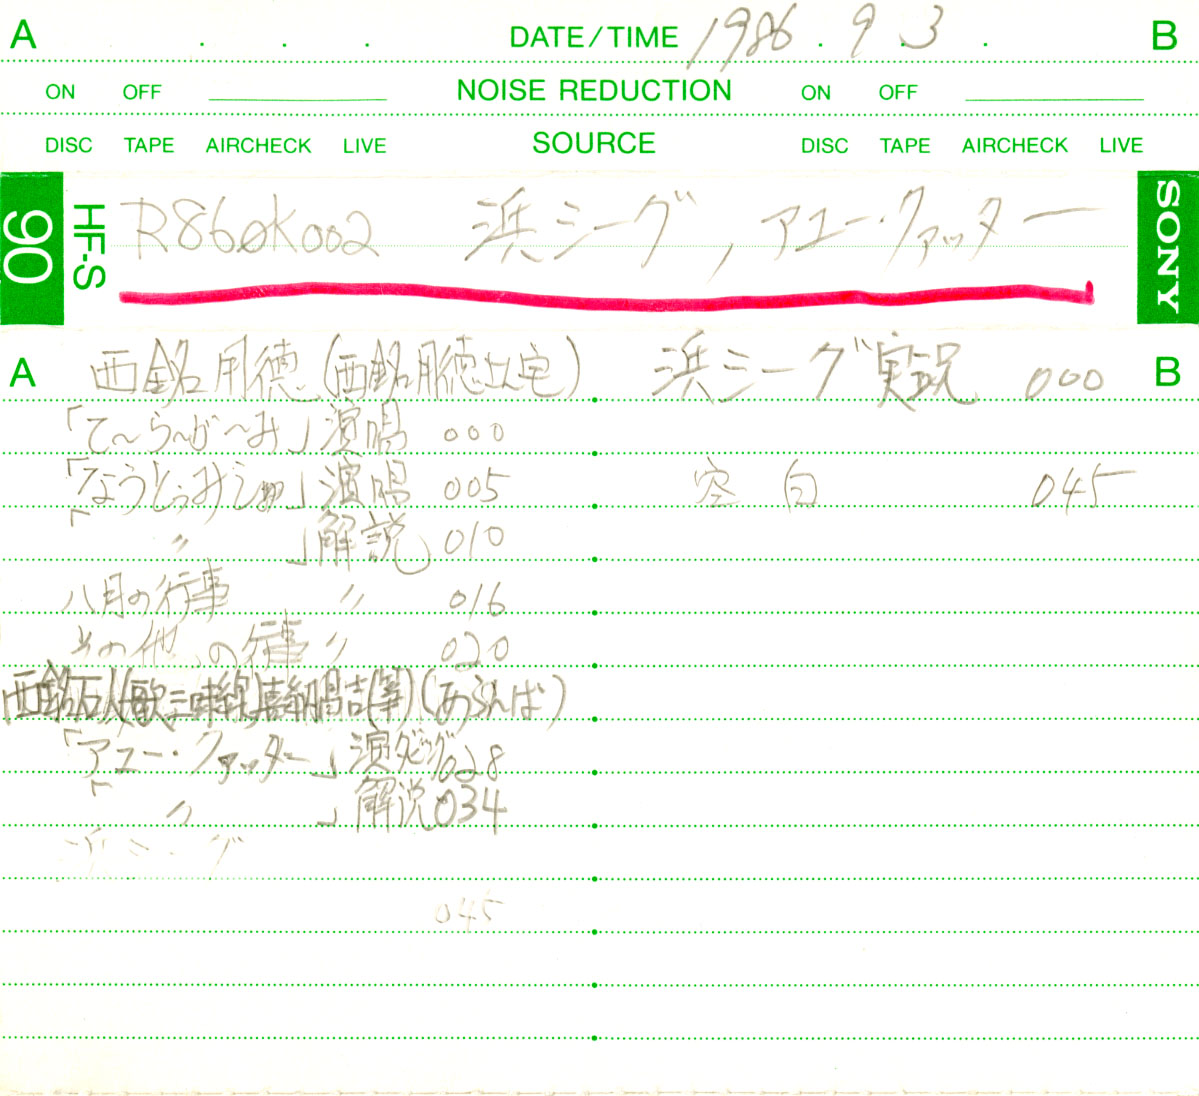 A . . . DATE/TIME 1986 . 9 . 3 . B
ON OFF NOISE REDUCTION ON OFF
DISC TAPE AIRCHECK LIVE SOURCE DISC TAPE AIRCHECK LIVE
90 HF-S R860K002 浜シーグ, アユー・ファッター SONY
A 西銘用徳(西銘用徳氏宅) 浜シーグ実況 000 B
「て〜ら〜が〜み」演唱 000
「なうとぅみしゅ」演唱 005 空白 045
「〃」解説 010
八月の行事 〃 016
その他の行事 〃 020
西銘万人(歌三味線)喜納昌吉(箏)(あらんば)
「アユー・ファッター」演ダビング028
「〃」解説034
浜シーグ
045